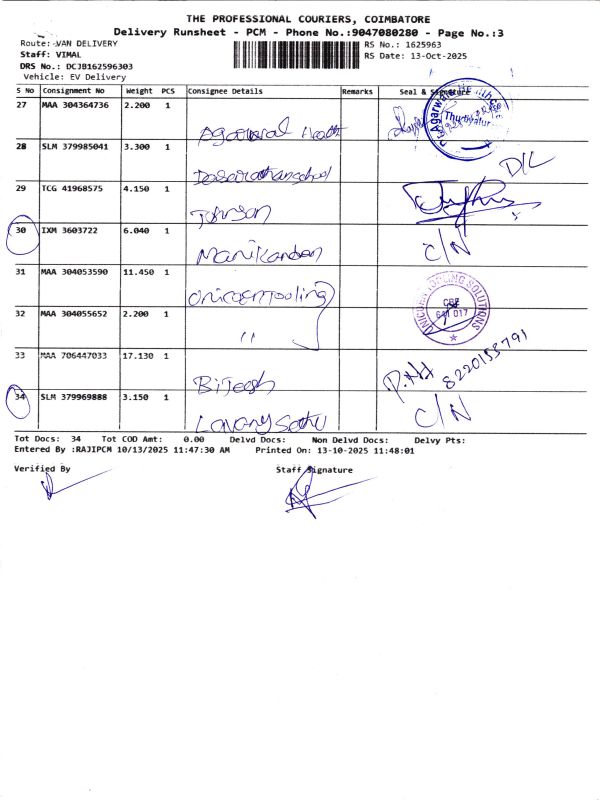 THE PROFESSIONAL COURIERS, COIMBATORE
Delivery Runsheet - PCM - Phone No.:9047080280 - Page No.:3
Route: VAN DELIVERY RS No.: 1625963
Staff: VIMAL RS Date: 13-Oct-2025
DRS No.: DCJB162596303
Vehicle: EV Delivery
S No Consignment No Weight PCS Consignee Details Remarks Seal & Signature
27 MAA 304364736 2.200 1 Agarwal Health
28 SLM 379985041 3.300 1 D/L
29 TCG 41968575 4.150 1 Johnson
30 IXM 3603722 6.040 1 Manikandan C/N
31 MAA 304053590 11.450 1 Unicorn Tooling UNICORN TOOLING SOLUTIONS
CBE
641 017
32 MAA 304055652 2.200 1 "
33 MAA 706447033 17.130 1 8220153791
34 SLM 379969888 3.150 1 C/N
Tot Docs: 34 Tot COD Amt: 0.00 Delvd Docs: Non Delvd Docs: Delvy Pts:
Entered By :RAJIPCM 10/13/2025 11:47:30 AM Printed On: 13-10-2025 11:48:01
Verified By Staff Signature